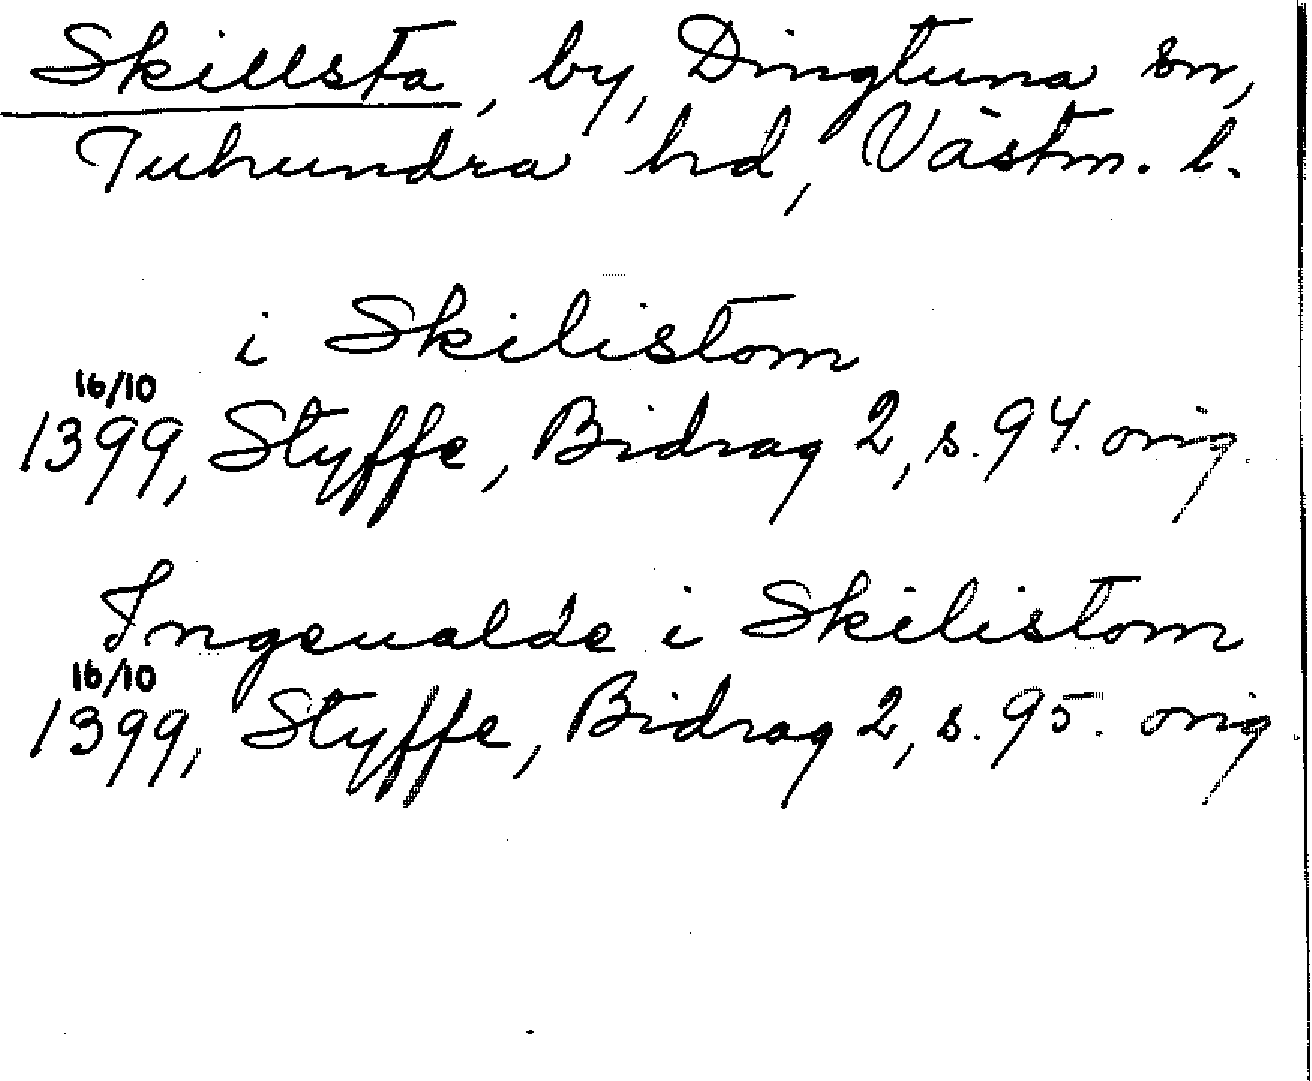 Skillsta, by, Dingtuna sn,
Tuhundra hd, Västm. l.
i Skilistom
16/10
1399, Styffe, Bidrag 2, s. 94. orig.
Ingeualde i Skilistom
16/10
1399, Styffe, Bidrag 2, s. 95. orig.